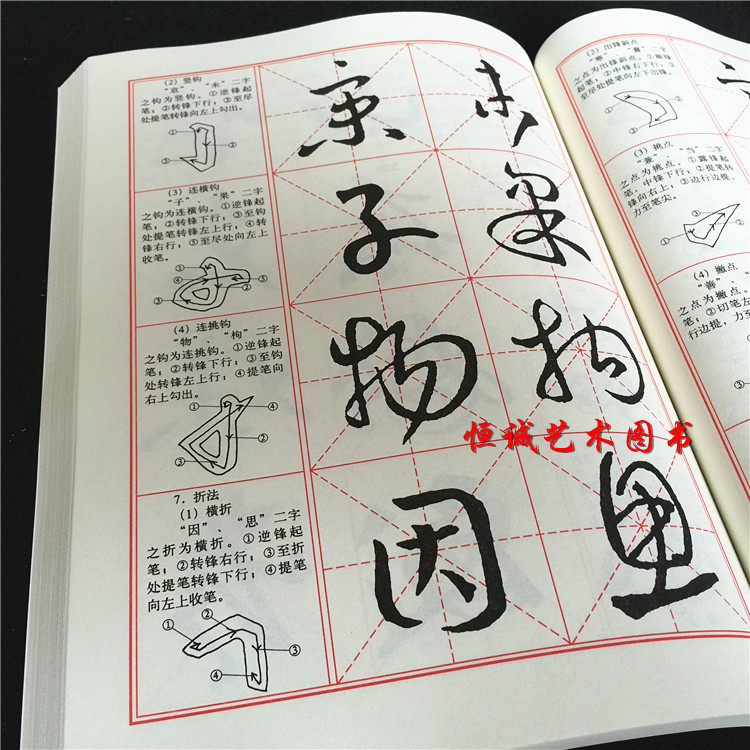 （2）竖钩
“京”、“未”二字
之钩为竖钩。①逆锋起
笔；②转锋下行；③至尽
处提笔转锋向左上勾出。
① ② ③
（3）连横钩
“子”、“果”二字
之钩为连横钩。①逆锋起
笔；②转锋下行；③至钩
处提笔转锋左上行；④转
锋右行；⑤至尽处向左上
收笔。
① ② ③ ④ ⑤
（4）连挑钩
“物”、“枸”二字
之钩为连挑钩。①逆锋起
笔；②转锋下行；③至钩
处转锋左上行；④提笔向
右上勾出。
① ④ ② ③
7．折法
（1）横折
“因”、“思”二字
之折为横折。①逆锋起
笔；②转锋右行；③至折
处提笔转锋下行；④提笔
向左上收笔。
① ② ③ ④
京 未
子 果
物 枸
因 思
恒诚艺术图书
（2）出锋斜点
之点为出锋斜点。
笔；②中锋右下行；
尽处提笔向左下出锋。
① ② ③
（3）挑点
“兼”、“当”二字
之点为挑点。①露锋起
笔，中锋下行；②提笔转
锋向右上；③边行边提，
力至笔尖。
① ② ③
（4）撇点
“善”、
之点为撇点。
笔；②切笔左
行边提，力至
①